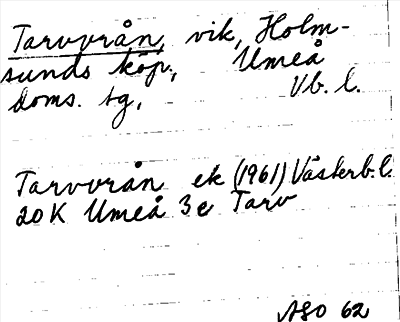 Tarvvrån, vik, Holm-
sunds köp., Umeå
doms. tg, Vb. l.
Tarvvrån ek (1961) Västerb. l.
20K Umeå 3e Tarv
AGO 62